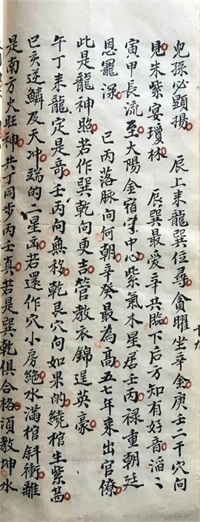 兒孫必顯揚　辰上来龍巽位尋貪曜坐辛金庚壬二千穴向
見朱紫宴瓊林　辰巽最爱辛共臨下后方知有好音
寅甲長流至大陽金宿穿中心紫氣木星居壬丙禄重朝廷
恩寵深　巳丙落脉向何朝辛癸最為高五年来出官僚
此是龍神照若作巽乾向更吉管教衣錦逞英豪
午丁来龍定是奇壬丙向無移乾艮穴向如果的繞棺生紫茜
巳亥送鱗及天冲端的一星凾若還作穴小房絶水满棺斜衝離
是南方火旺神共丁同步丙壬真若是巽乾俱合格須教坤水